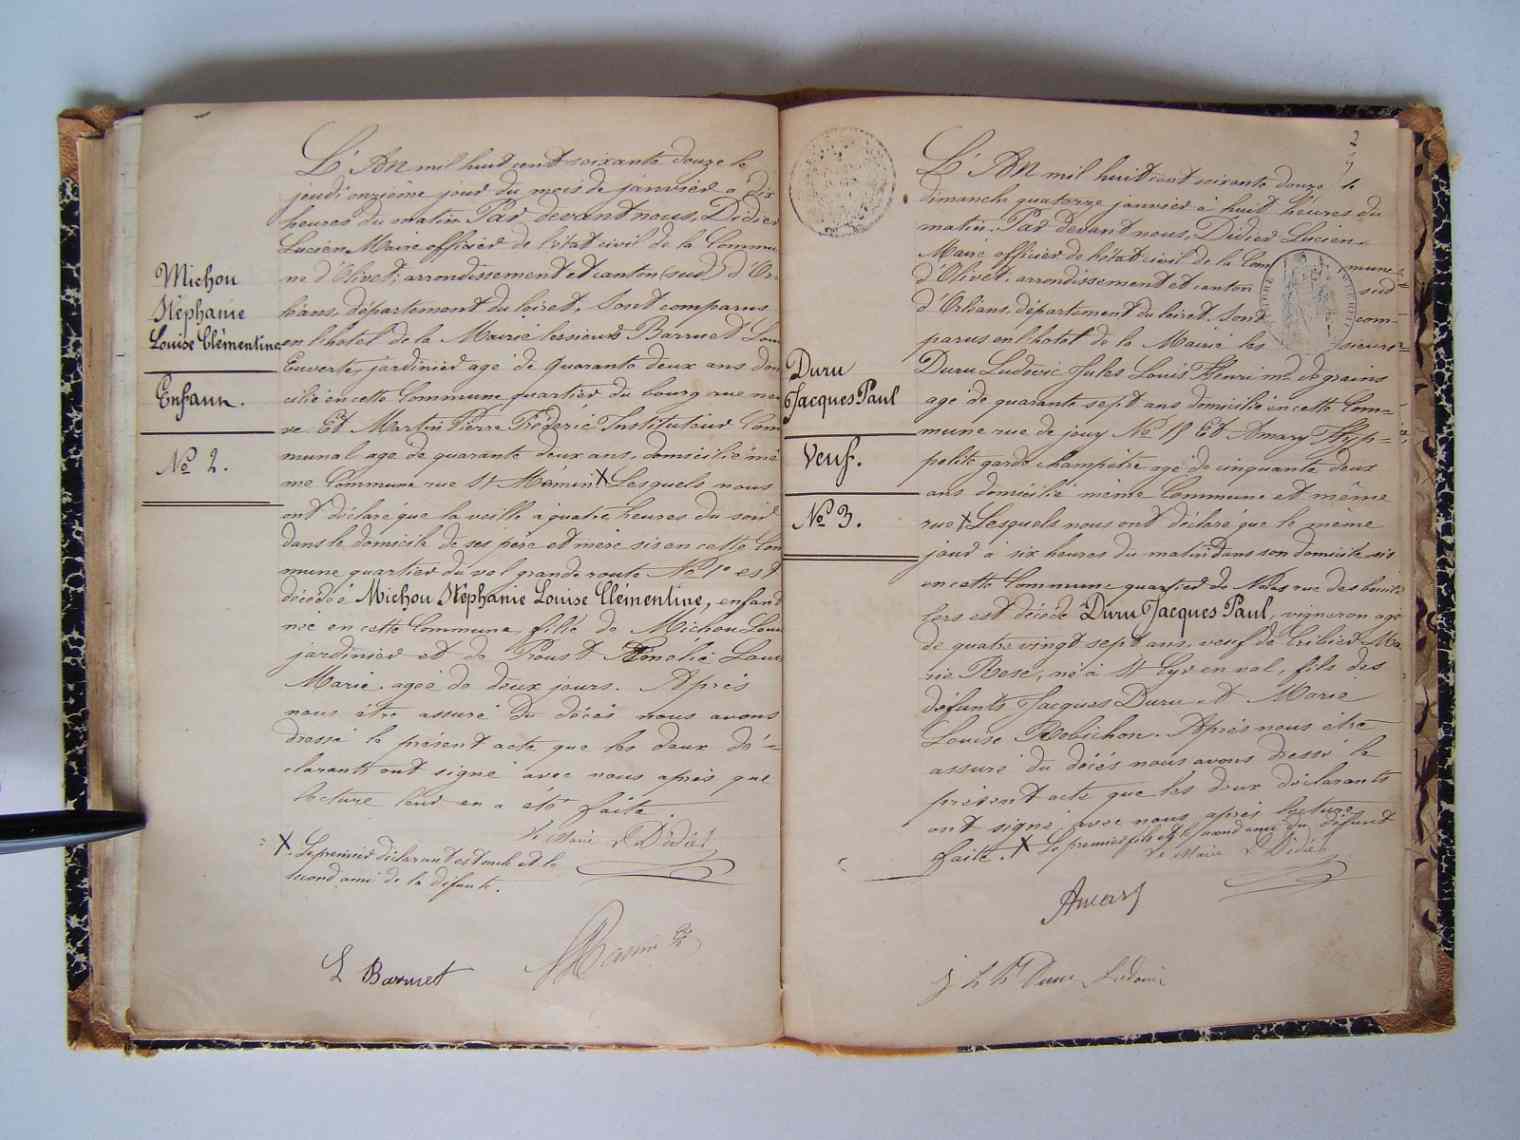 L'An mil huit cent soixante douze le
jeudi onzième jour du mois de janvier à dix
heures du matin Par devant nous, Didier
Lucien Maire officier de l'état civil de la Commu
ne d'Olivet, arrondissement et canton (sud) d'Or
léans, département du loiret, Sont comparus
en l'hôtel de la Mairie les sieurs Barruet Loui
Euverte, jardinier agé de quarante deux ans dom
cilié en cette Commune quartier du bourg rue neu
ve Et Martin Pierre Fréderic Instituteur Com
munal agé de quarante deux ans, domicilié mê
me Commune rue St Mêmin X Lesquels nous
ont déclaré que la veille à quatre heures du soir
dans le domicile de ses père et mère sis en cette Com
mune quartier du val grande route No 1er est
décédée Michou Stéphanie Louise Clémentine, enfant
née en cette Commune fille de Michou Loui
jardinier et de Proust Amélie Loui
Marie. agée de deux jours. Après
nous être assuré du décès nous avons
dressé le présent acte que les deux dé=
clarants ont signé avec nous après que
lecture leur en a été faite.
Le Maire L Didier
X. Le premier déclarant est oncle et le
second ami de la défunte.
L Barruet
Michou
Stéphanie
Louise Clémentine
Enfann.
No 2.
2
L'An mil huit cent soixante douze le
dimanche quatorze janvier à huit heures du
matin. Par devant nous, Didier Lucien
Maire officier de l'état civil de la Com mune
d'Olivet, arrondissement et canton sud
d'Orléans, département du loiret Sont com-
parus en l'hôtel de la Mairie les sieurs
Duru Ludovic Jules Louis Henri md de grains
agé de quarante sept ans domicilié en cette Com=
mune rue de jouy No 15 Et Amary Hyp=
polite garde champêtre agé de cinquante deux
ans domicilié même Commune et même
rue X Lesquels nous ont déclaré que le même
jour à six heures du matin dans son domicile sis
en cette Commune quartier du rue des
est décédé Duru Jacques Paul, vigneron agé
de quatre vingt sept ans, veuf de Cribier Ma
rie Rose, né à St Cyr en val, fils des
défunts Jacques Duru et Marie
Louise Robichon. Après nous être
assuré du décès nous avons dressé le
présent acte que les deux déclarants
ont signé avec nous après lecture
faite. X Le premier fils et le second ami du défunt
Le Maire L Didier
Amary
Duru Ludovic
Duru
Jacques Paul
Veuf.
No 3.